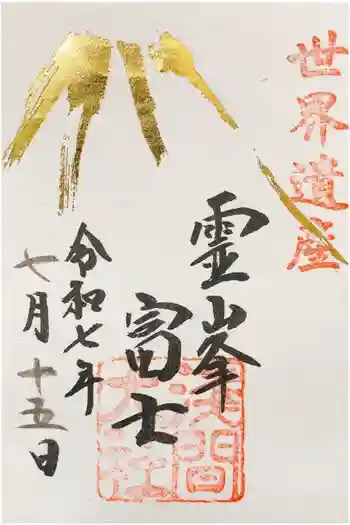 世界遺産
霊峯
富士
浅間大社
令和七年
七月十五日